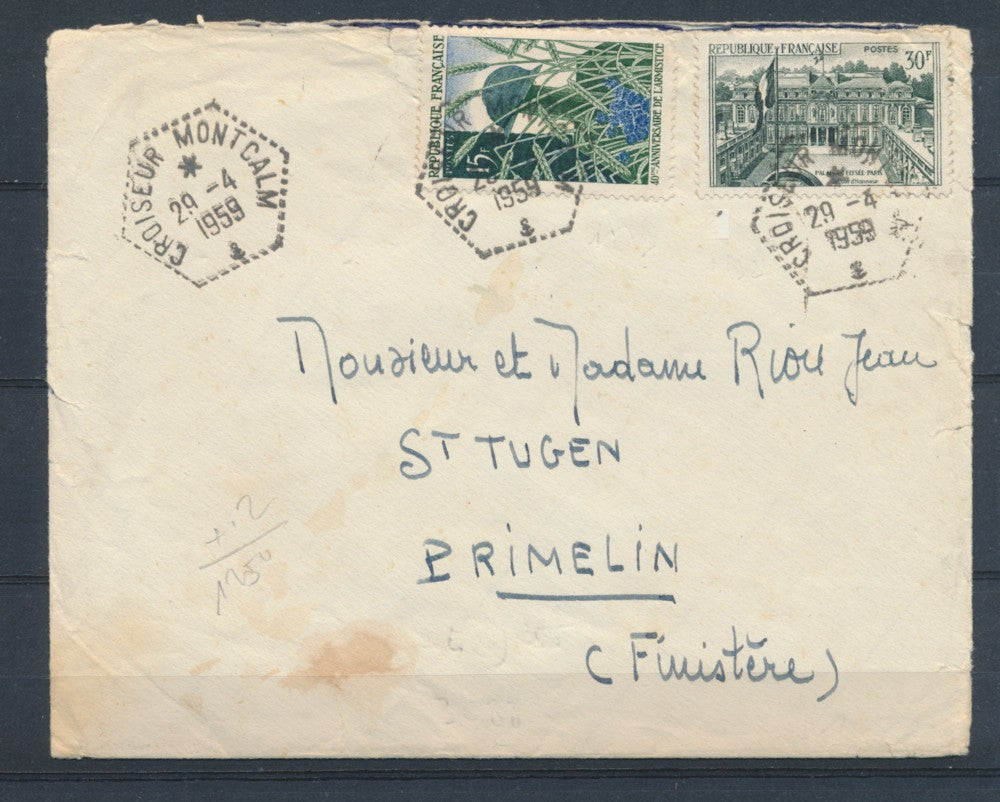 RÉPUBLIQUE FRANÇAISE
15F
40ᵉ ANNIVERSAIRE DE L'ARMISTICE
RÉPUBLIQUE FRANÇAISE POSTES 30F
PALAIS DE L'ÉLYSÉE PARIS
Cour d'Honneur
CROISEUR MONTCALM
29 -4
1959
CROISEUR MONTCALM
1959
CROISEUR MONTCALM
29 -4
1959
Monsieur et Madame Riou Jean
ST TUGEN
PRIMELIN
(Finistère)
+.2
1250